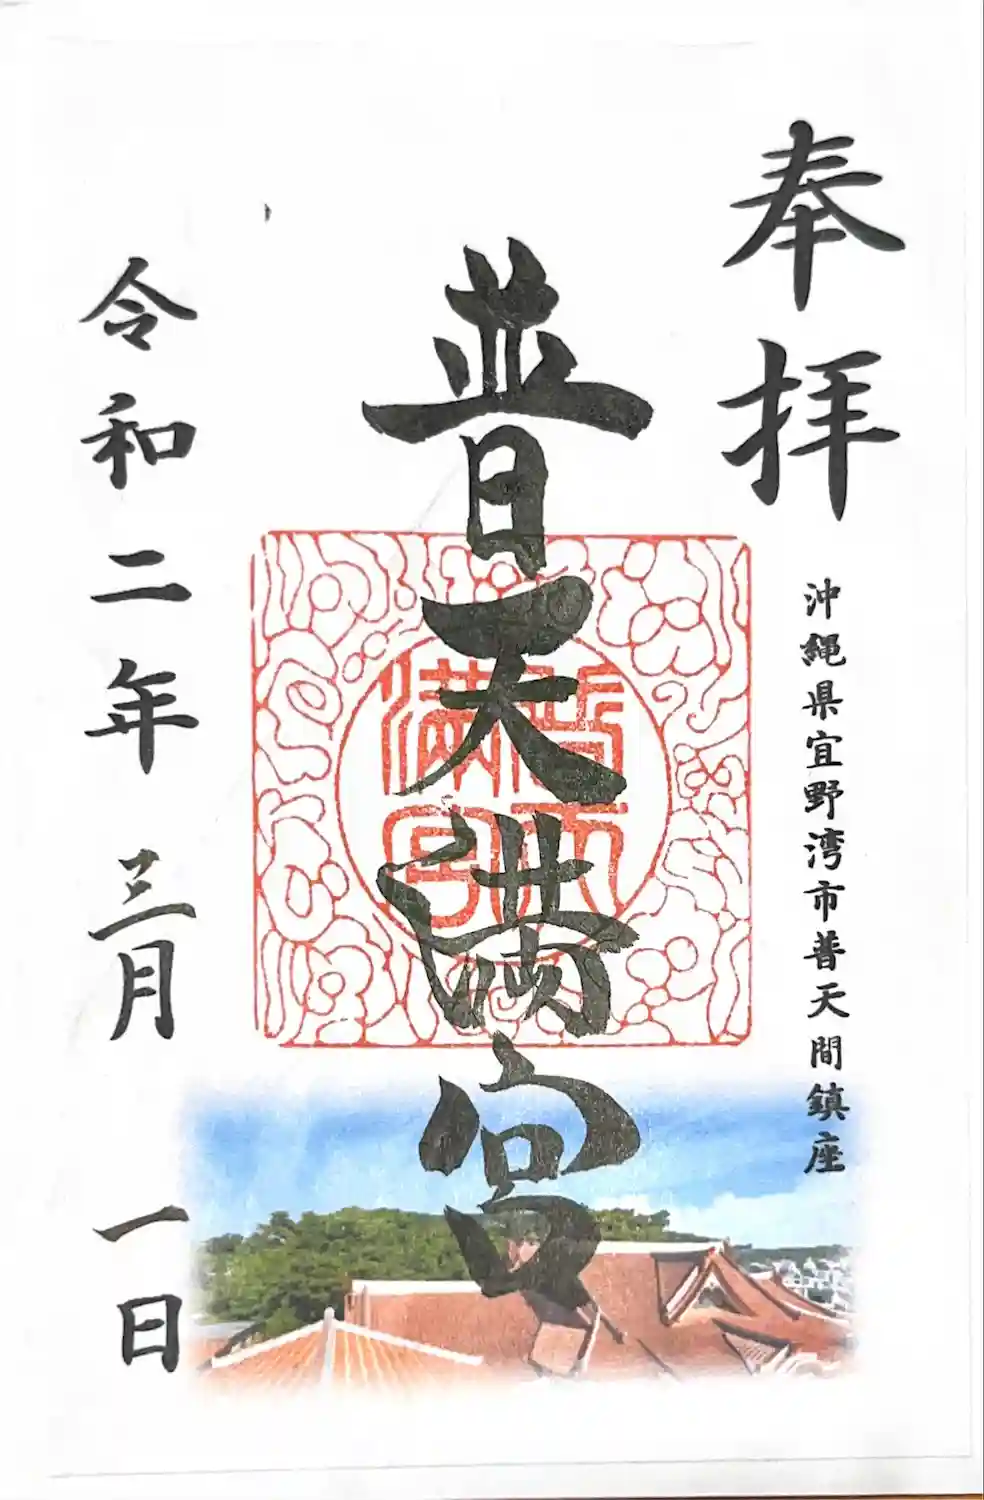 奉拝
沖縄県宜野湾市普天間鎮座
普天満宮
普天
満宮
令和二年 三月 一日